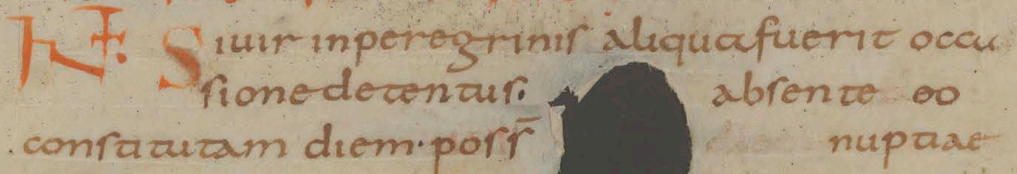 INT. Si uir in peregrinis aliqua fuerit occu
sione detentus. absente eo
constitutam diem. poss̄ nuptiae